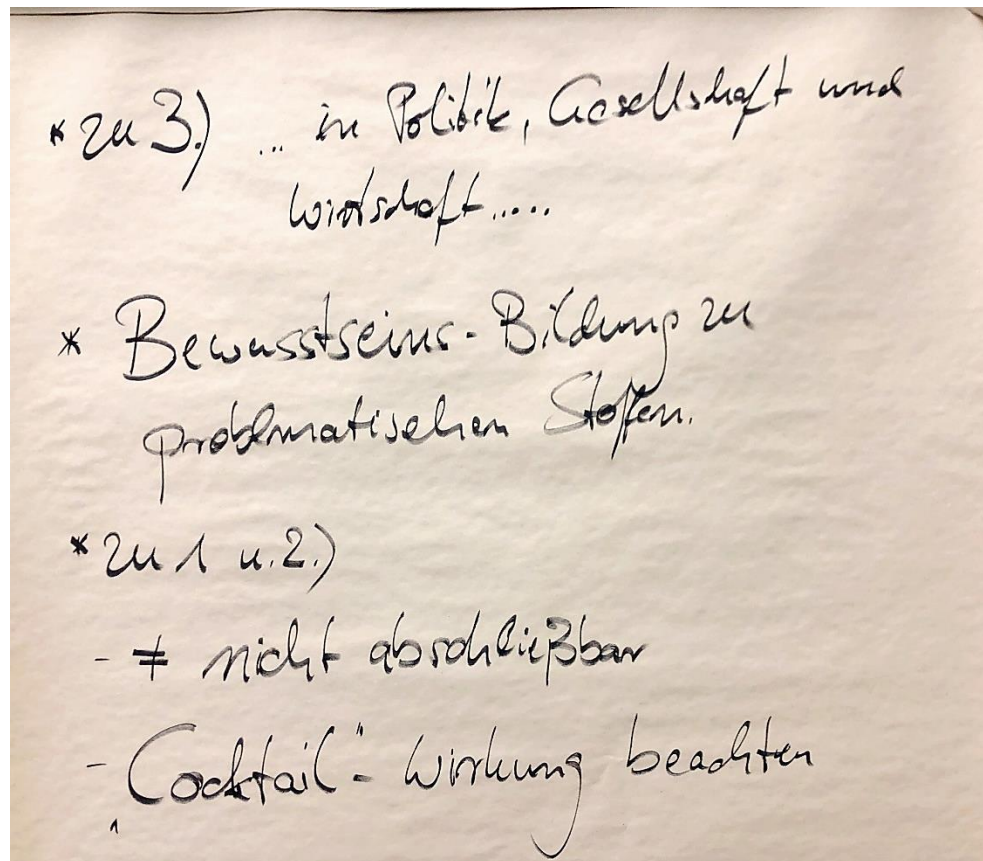 * zu 3.) ... in Politik, Gesellschaft und
Wirtschaft.....
* Bewusstseins-Bildung zu
problematischen Stoffen.
* zu 1 u. 2.)
- ≠ nicht abschließbar
- „Cocktail"- Wirkung beachten